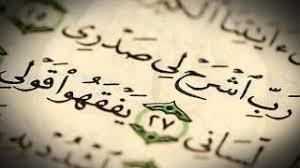 ءَايَٰتِنَا ٱلْكُبْرَى
رَبِّ ٱشْرَحْ لِي صَدْرِي
لِّسَانِي ٢٧ يَفْقَهُوا۟ قَوْلِي
ٱشْدُدْ